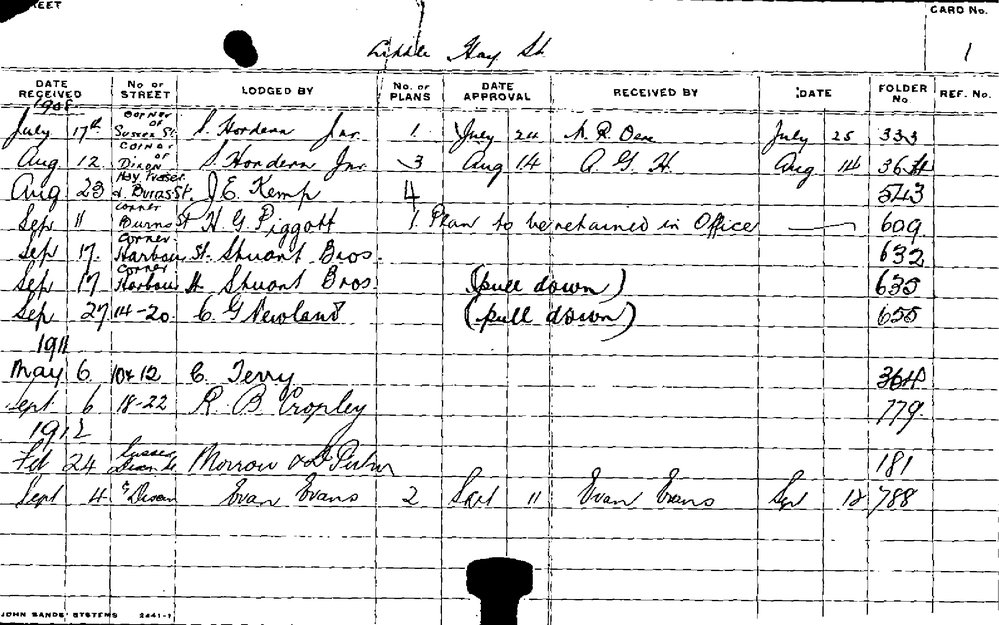 CARD No.
Little Hay St. 1
DATE RECEIVED No. of STREET LODGED BY No. of PLANS DATE APPROVAL RECEIVED BY DATE FOLDER No REF. No.
1908
July 17th corner of Sussex St. S. Hordern Jnr. 1. July 24 July 25 333
Aug 12. corner of Dixon S. Hordern Jnr. 3 Aug 14 A. G. H. Aug 14 364
Aug 23 Hay, & Burns St. J E. Kemp 4 543
Sep 11 corner Burns St H G Piggott 1. Plan to be retained in Office 609
Sep 17. corner Harbour St. Stuart Bros. 632
Sep 17 corner Harbour St Stuart Bros (pull down) 635
Sep 27 14-20. C. G Newland (pull down) 655
1911
May 6. 10 & 12 C. Terry 364
Sept 6. 18-22 R. B Cropley 779
1912
Feb 24 Sussex Morrow & 181
Sept 4. Dixon Evan Evans 2 Sept 11 Evan Evans Sep 12 788
JOHN SANDS' SYSTEMS 2441-1